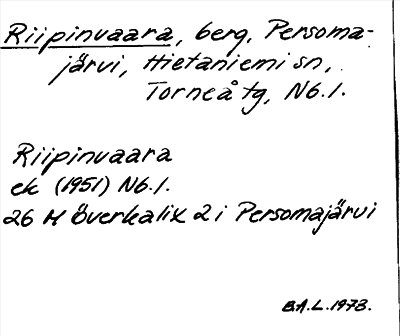 Riipinvaara, berg, Persoma-
järvi, Hietaniemi sn,
Torneå tg, Nb.l.
Riipinvaara
ek (1951) Nb.l.
26 M Överkalix 2 i Persomajärvi
B.A.L. 1973.